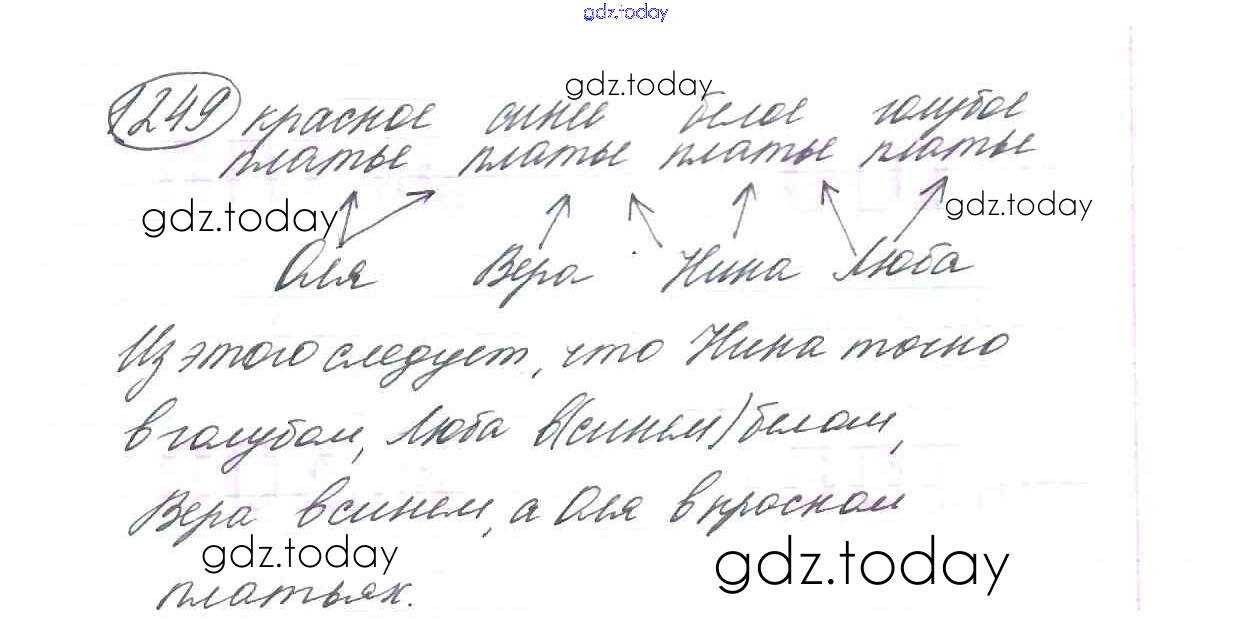 gdz.today
gdz.today
1249 красное синее белое голубое
платье платье платье платье
gdz.today gdz.today
Оля Вера Нина Люба
Из этого следует, что Нина точно
в голубом, Люба в (синем) белом,
Вера в синем, а Оля в красном
gdz.today gdz.today
платьях.